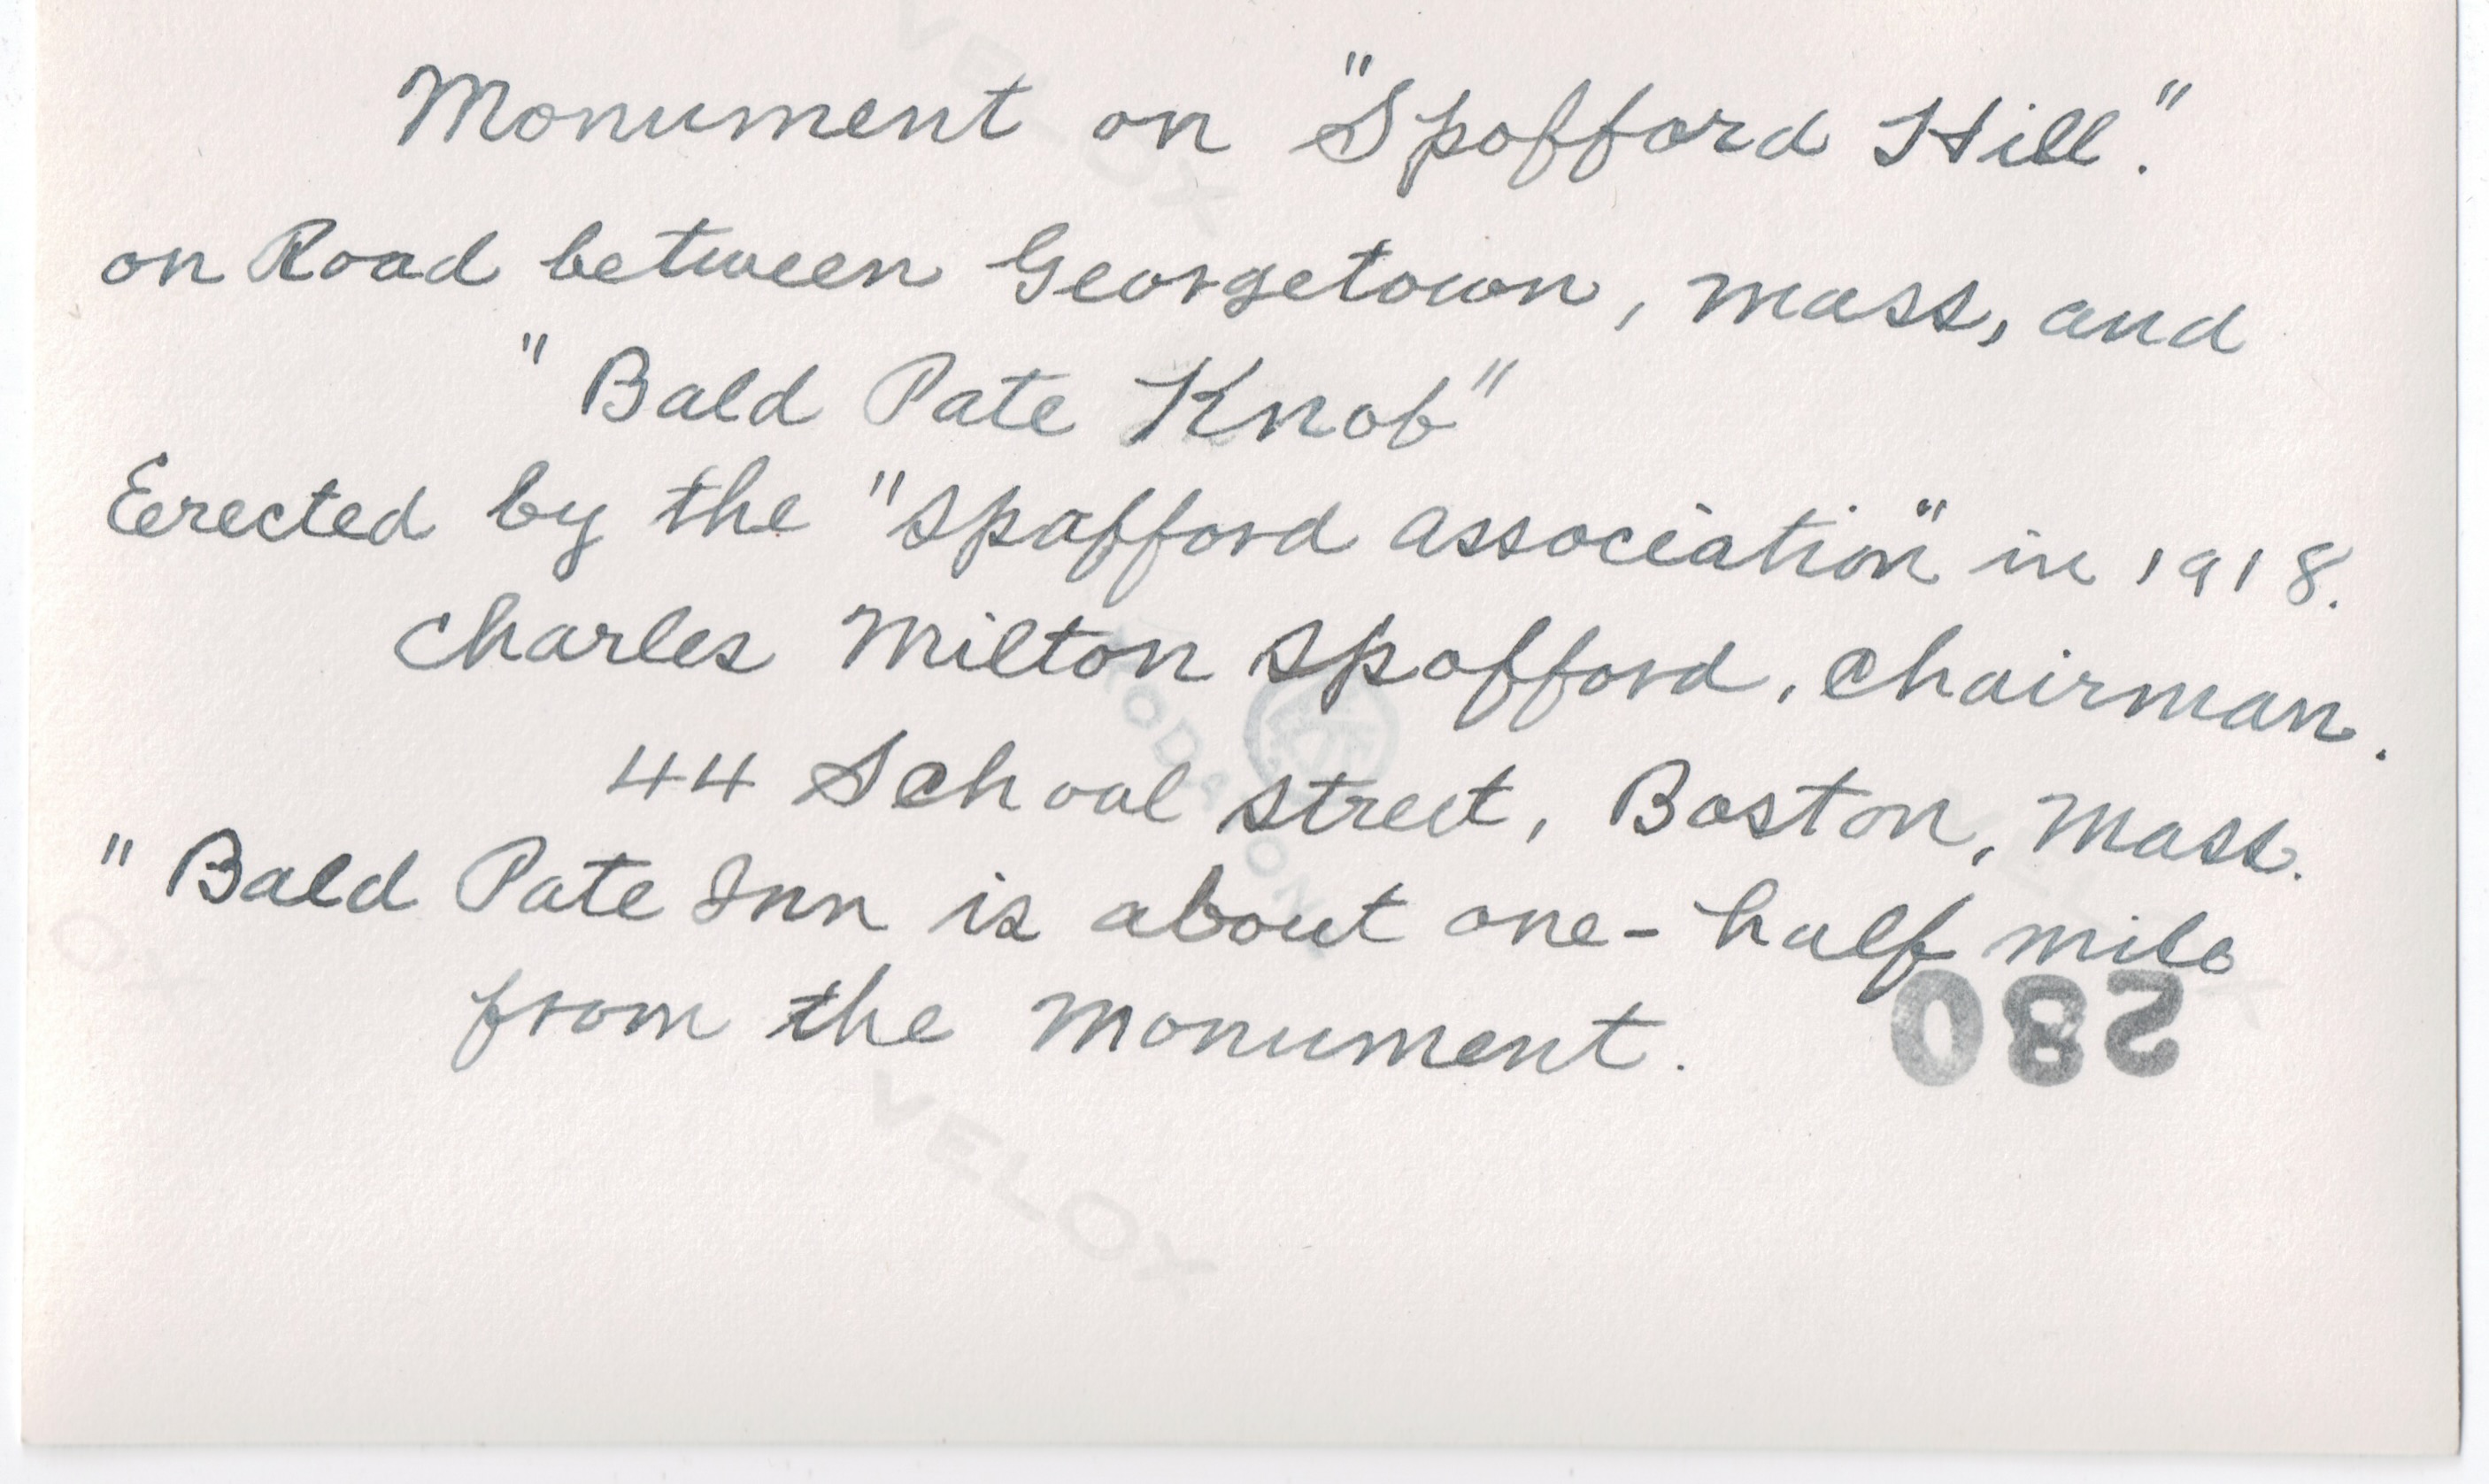 Monument on "Spofford Hill."
on Road between Georgetown, Mass, and
"Bald Pate Knob"
Erected by the "Spafford Association" in 1918.
Charles Milton Spofford, Chairman.
44 School Street, Boston, Mass.
"Bald Pate Inn is about one-half mile
from the Monument.
280
VELOX
VELOX
KODAK
VELOX